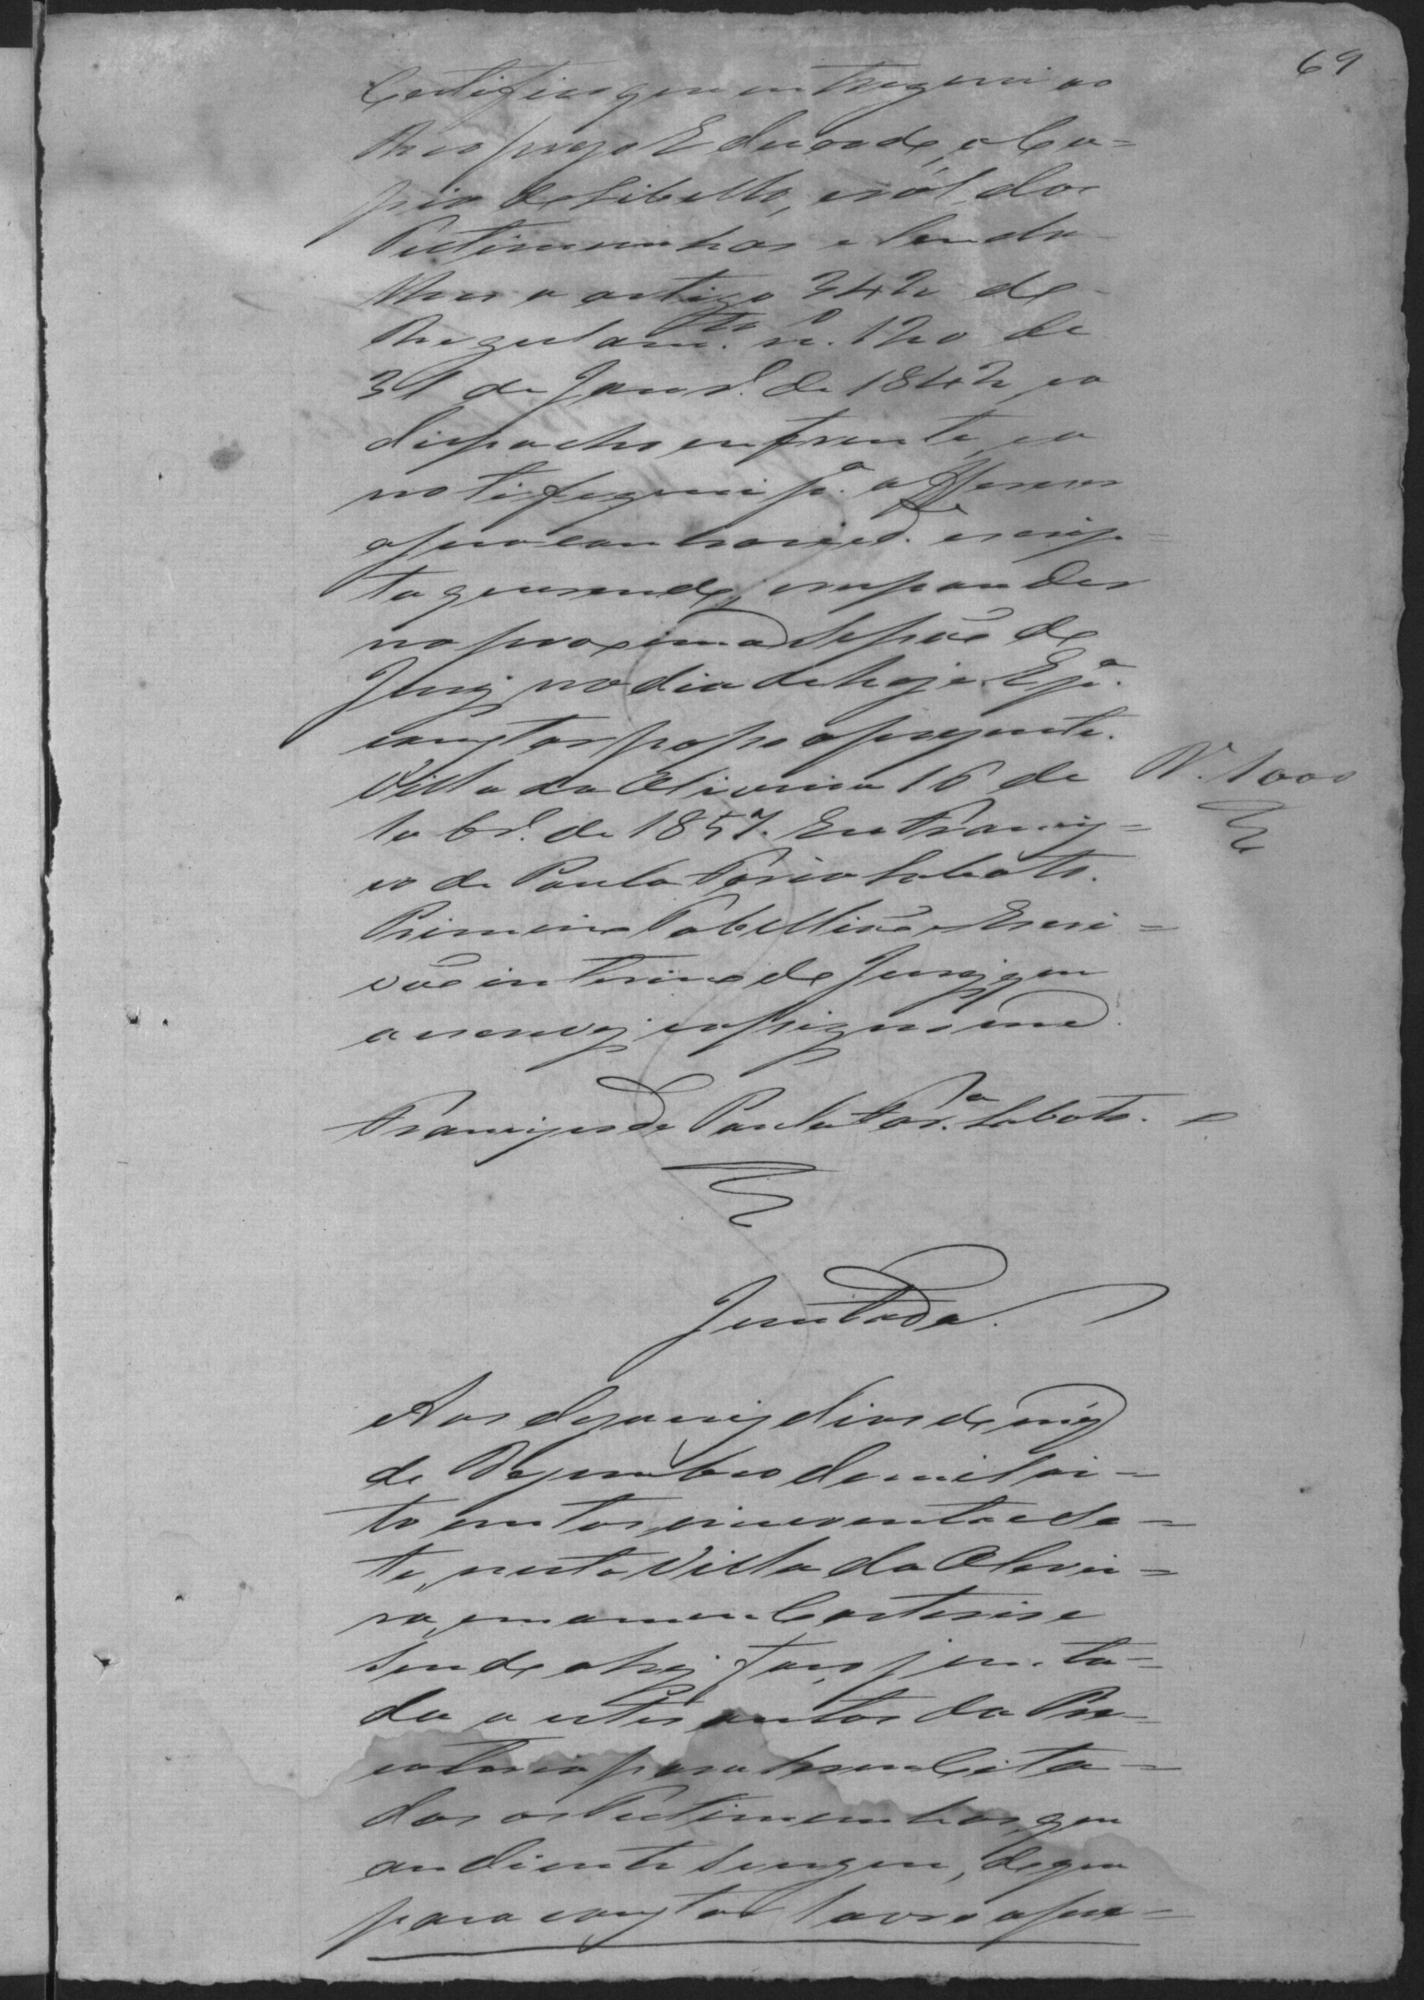 69
Certifico que entreguei ao
Reo prezo Eduardo, a Co-
pia do Libello, e ról das
Testimunhas e lendo
lhes o artigo 342 do
Regulam.to n.o 120 de
31 de Janr.o de 1842, e o
dispacho enfrente, e o
notifiquei p.a offerecer
a sua contraried.e escrip-
ta querendo, e responder
na proxima Sessão do
Jury, no dia de hoje. E p.a
constar passo a presente.
Villa da Oliveira 16 de
10br.o de 1857. Eu Francis-
co de Paula Faria Lobato.
Primeiro Tabellião e Escri-
vão interino do Jury, que
a escrevy, e assignei.
N. 1000
Francisco de Paula Far.a Lobato.
Juntada.
Aos dezaseis dias do mez
de Dezembro de mil oi-
to centos, cincoenta e se-
te, nesta Villa da Olivei-
ra, em meu Cartorio e
sendo ahy, faço junta-
da a estes autos da Pre-
catoria para serem Cita-
das as Testimunhas, que
an diante segue, do que
para constar lavro o pre-